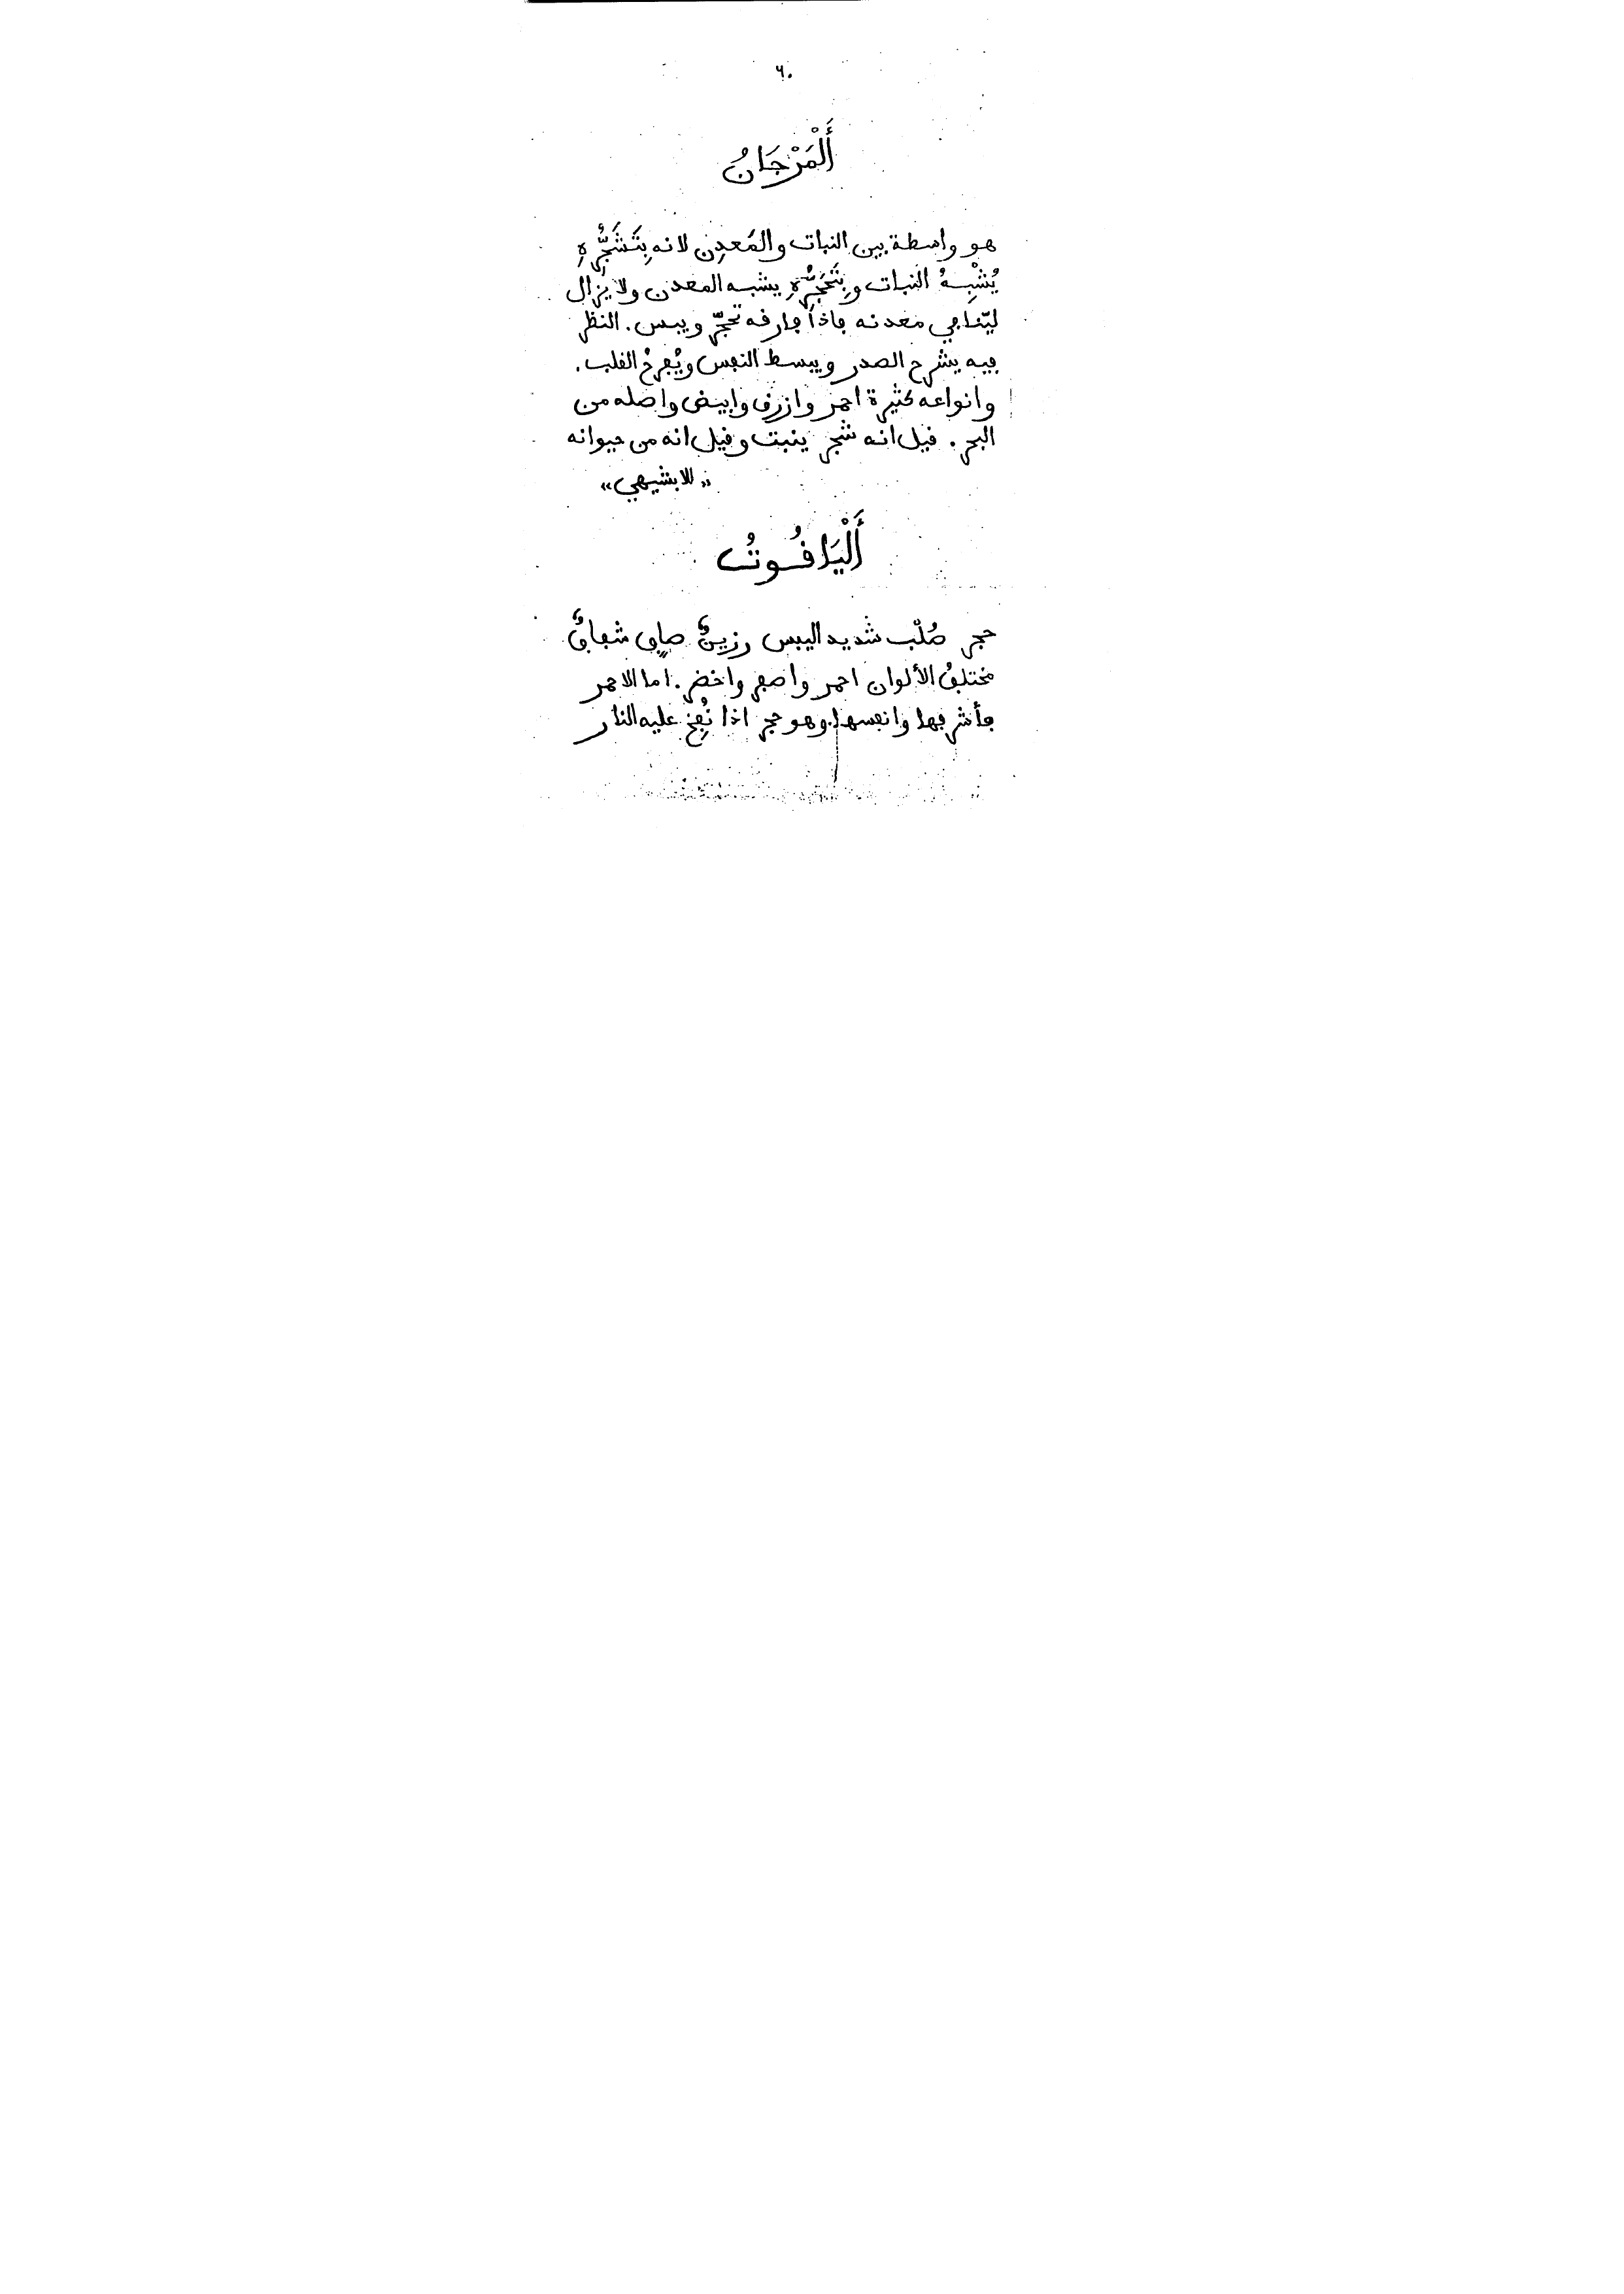 ٦٠
أَلْمَرْجَانُ
هو واسطة بين النبات والمَعدِن لانه بِتَشَجُّرِهِ
يُشْبِهُ النبات وبِتَحَجُّرِهِ يشبه المعدن ولا يزال
ليّنا في معدنه فاذا فارقه تحجّر ويبس. النظر
فيه يشرح الصدر ويبسط النفس ويُفرحُ القلب.
وانواعه كثيرة احمر وازرق وابيض واصله من
البحر. قيل انه شجر ينبت وقيل انه من حيوانه
«للابشيهي»
أَلْيَاقُوتُ
حجر صُلْب شديد اليبس رزينٌ صافٍ شفافٌ
مختلفُ الألوان احمر واصفر واخضر. اما الاحمر
فأشرفها وانفسها. وهو حجر اذا نُفِخ عليه النار